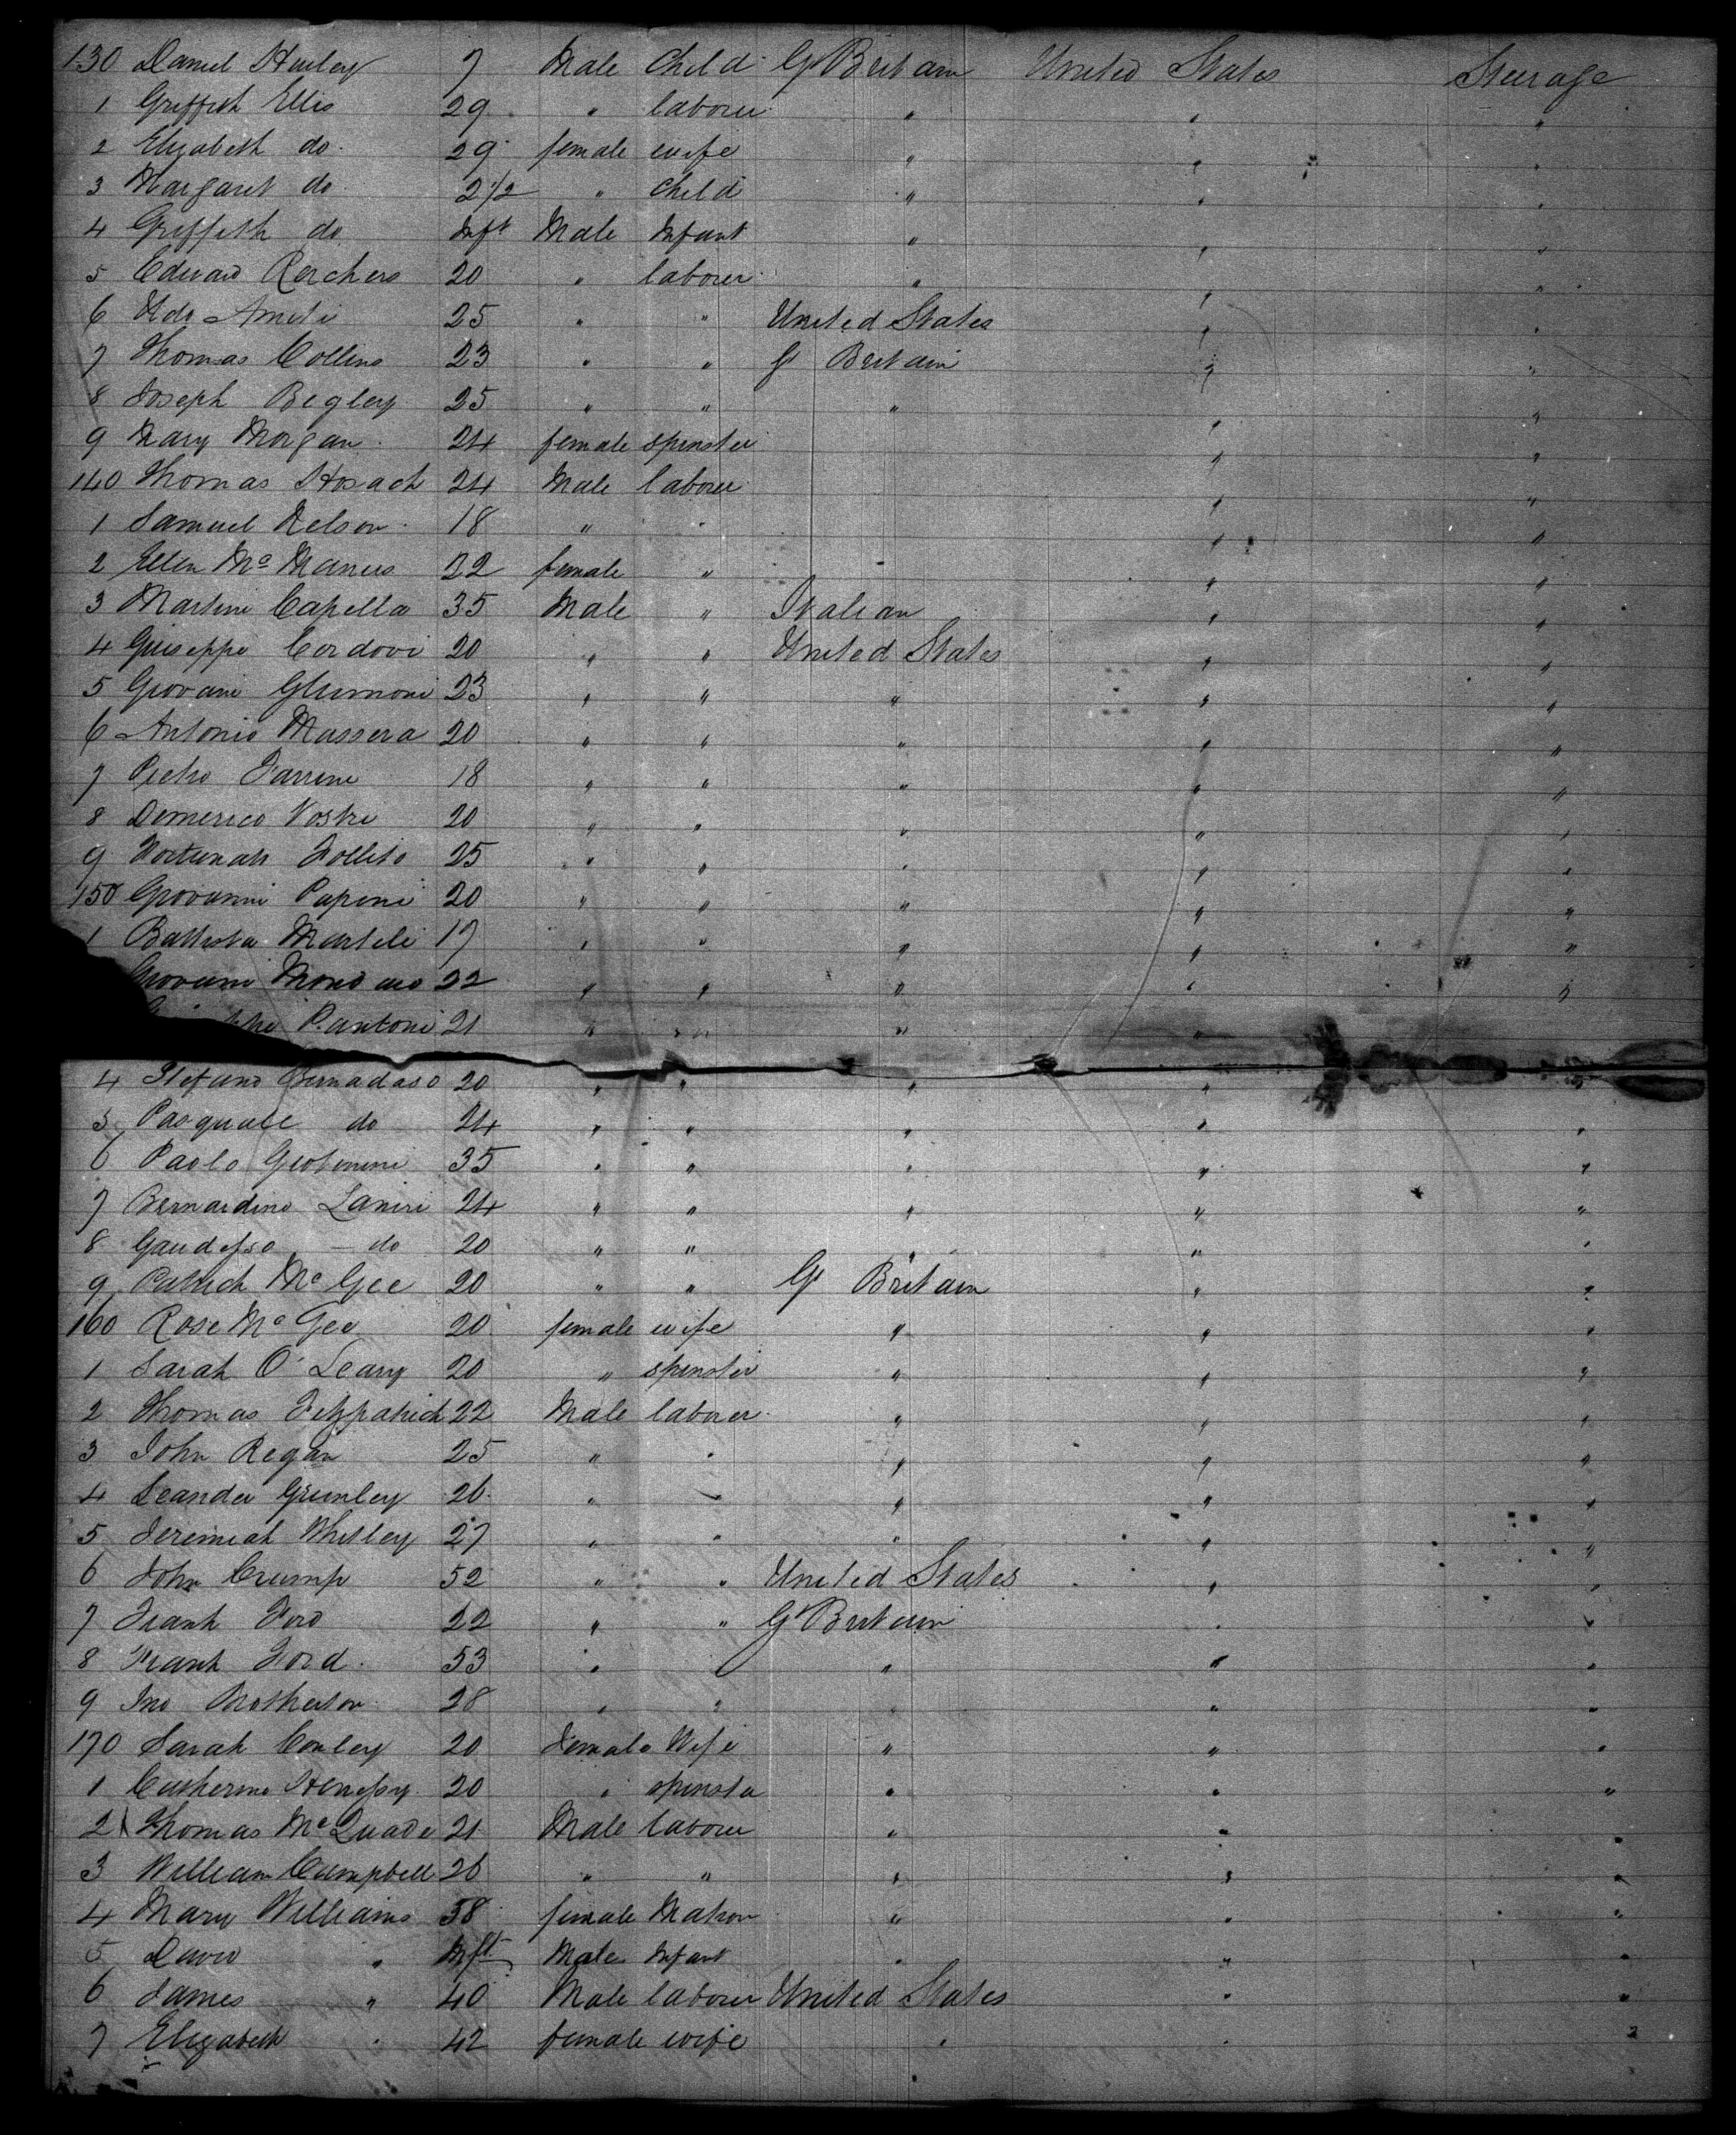 130 Daniel Hurley 7 Male Child Gt Britain United States Steerage
1 Griffith Ellis 29 " laborer " " "
2 Elizabeth do. 29 female wife " " "
3 Margaret do. 2 1/2 " Child " " "
4 Griffith do Inft Male Infant " " "
5 Edward 20 " laborer " " "
6 25 " " United States " "
7 Thomas Collins 23 " " Gt Britain " "
8 Joseph Begley 25 " " " " "
9 Mary Morgan 24 female spinster " "
140 Thomas Hosach 24 Male laborer " "
1 Samuel Nelson 18 " " " "
2 Ellen Mc Manus 22 female " " "
3 Martini Capella 35 Male " Italian " "
4 Guiseppe Cordovi 20 " " United States " "
5 Giovani 23 " " " " "
6 Antonio Massera 20 " " " " "
7 Pietro Farrini 18 " " " " "
8 Domenico Vostri 20 " " " " "
9 Follito 25 " " " " "
150 Giovanni Papini 20 " " " " "
1 Battista Marteli 17 " " " " "
Giovani 22 " " " " "
P.antoni 21 " " " "
4 Stefano 20 " " " " "
5 Pasquale do 24 " " " " "
6 Paolo 35 " " " " "
7 Bernardino Laniri 24 " " " " "
8 do 20 " " " " "
9 Patrick Mc Gee 20 " " Gt Britain " "
160 Rose Mc Gee 20 female wife " " "
1 Sarah O'Leary 20 " spinster " " "
2 Thomas Fitzpatrick 22 Male laborer " " "
3 John Regan 25 " " " " "
4 Leander Grimley 26 " " " " "
5 Jeremiah Whitley 27 " " " " "
6 John Crump 52 " " United States " "
7 Frank Ford 22 " " Gt Britain " "
8 Frank Ford 53 " " " " "
9 Jno Brotherton 28 " " " " "
170 Sarah Conley 20 Female Wife " " "
1 Catherine Hennessy 20 " spinster " " "
2 Thomas Mc Quade 21 Male laborer " " "
3 William Campbell 26 " " " " "
4 Mary Williams 38 female Matron " " "
5 David " Inft Male Infant " " "
6 James " 40 Male laborer United States " "
7 Elizabeth " 42 female wife " " "